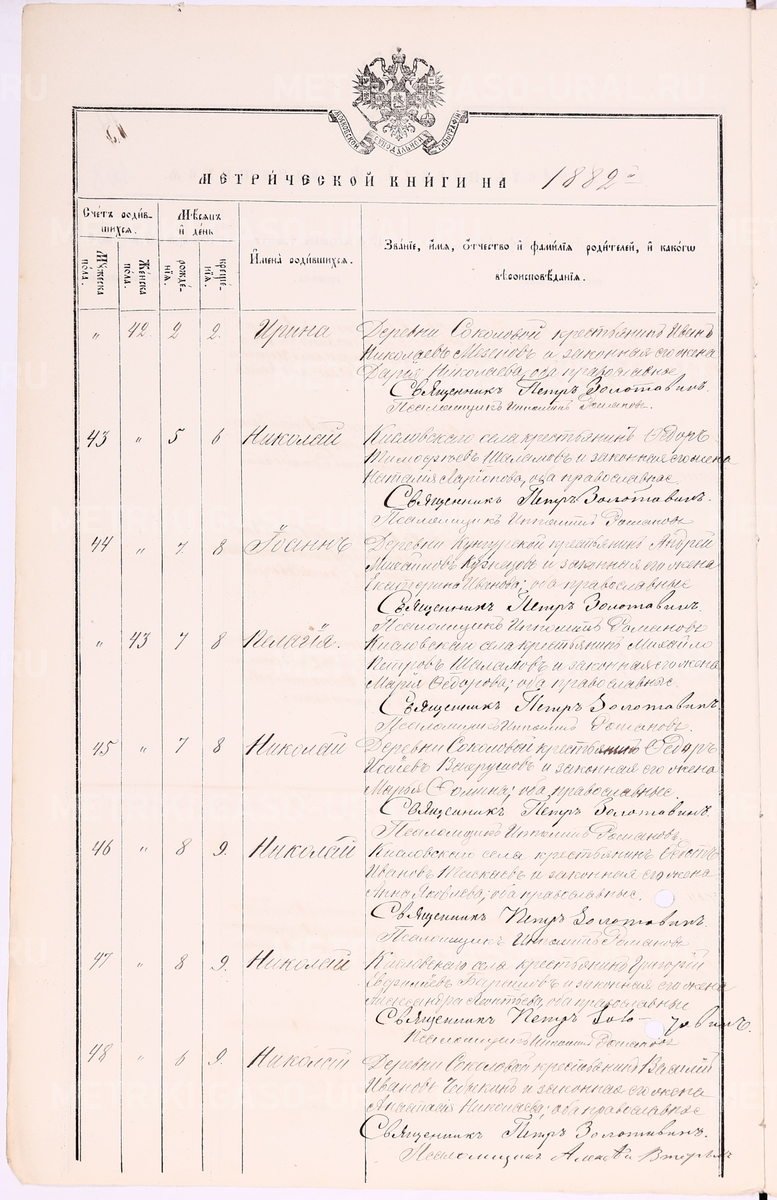 МЕТРИЧЕСКОЙ КНИГИ НА 1882 г
Счетъ родив-
шихся.
Мѣсяцъ
и день
Мужеска
пола.
Женска
пола.
рожде-
нія.
креще-
нія.
Имена родившихся.
Званіе, имя, отчество и фамилія родителей, и какого
вѣроисповѣданія.
" 42 2 2. Ирина
Деревни Соколовой крестьянинъ Иванъ
Николаевъ Мезеновъ и законная его жена
Дарія Николаева, оба православные
Священникъ Петръ Золотавинъ.
Псаломщикъ Романовъ.
43 " 5 6 Николай
Кисловскаго села крестьянинъ Ѳедоръ
Тимофѣевъ Шаламовъ и законная его жена
Наталія Ларіонова, оба православные
Священникъ Петръ Золотавинъ.
Псаломщикъ Романовъ
44 " 7 8 Іоаннъ
Деревни Кунгурской крестьянинъ Андрей
Михайловъ Кузнецовъ и законная его жена
Екатерина Иванова; оба православные
Священникъ Петръ Золотавинъ.
Псаломщикъ Романовъ
" 43 7 8 Пелагія.
Кисловскаго села крестьянинъ Михайло
Петровъ Шаламовъ и законная его жена
Марія Ѳедорова; оба православные
Священникъ Петръ Золотавинъ.
Псаломщикъ Романовъ.
45 " 7 8 Николай
Деревни Соколовой крестьянинъ Ѳедоръ
Исаевъ и законная его жена
Марья Ѳомина; оба православные.
Священникъ Петръ Золотавинъ.
Псаломщикъ Романовъ.
46 " 8 9. Николай
Кисловскаго села крестьянинъ
Ивановъ и законная его жена
Анна Яковлева; оба православные.
Священникъ Петръ Золотавинъ.
Псаломщикъ Романовъ
47 " 8 9. Николай
Кисловскаго села крестьянинъ Григорій
и законная его жена
Александра оба православные
Священникъ Петръ Золотавинъ.
Псаломщикъ Романовъ
48 " 6 9. Николай
Деревни Соколовой крестьянинъ Василій
Ивановъ и законная его жена
Анастасія Николаева; оба православные
Священникъ Петръ Золотавинъ.
Псаломщикъ